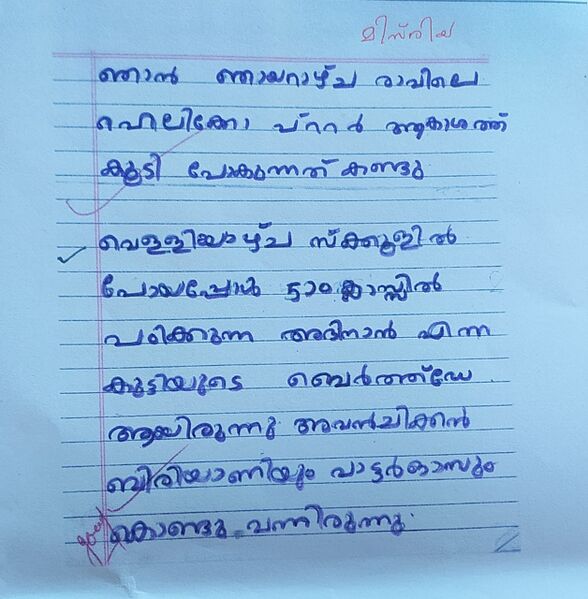 മിസ്‌രിയ
ഞാൻ ഞായറാഴ്ച രാവിലെ
ഹെലിക്കോ പ്റ്റർ ആകാശത്ത്
കൂടി പോകുന്നത് കണ്ടു
വെള്ളിയാഴ്ച സ്ക്കൂളിൽ
പോയപ്പോൾ 5ാം ക്ലാസ്സിൽ
പഠിക്കുന്ന അദിനാൻ എന്ന
കുട്ടിയുടെ ബെർത്ത്ഡേ
ആയിരുന്നു അവൻചിക്കൻ
ബിരിയാണിയും വാട്ടർകാസും
കൊണ്ടു വന്നിരുന്നു.
good